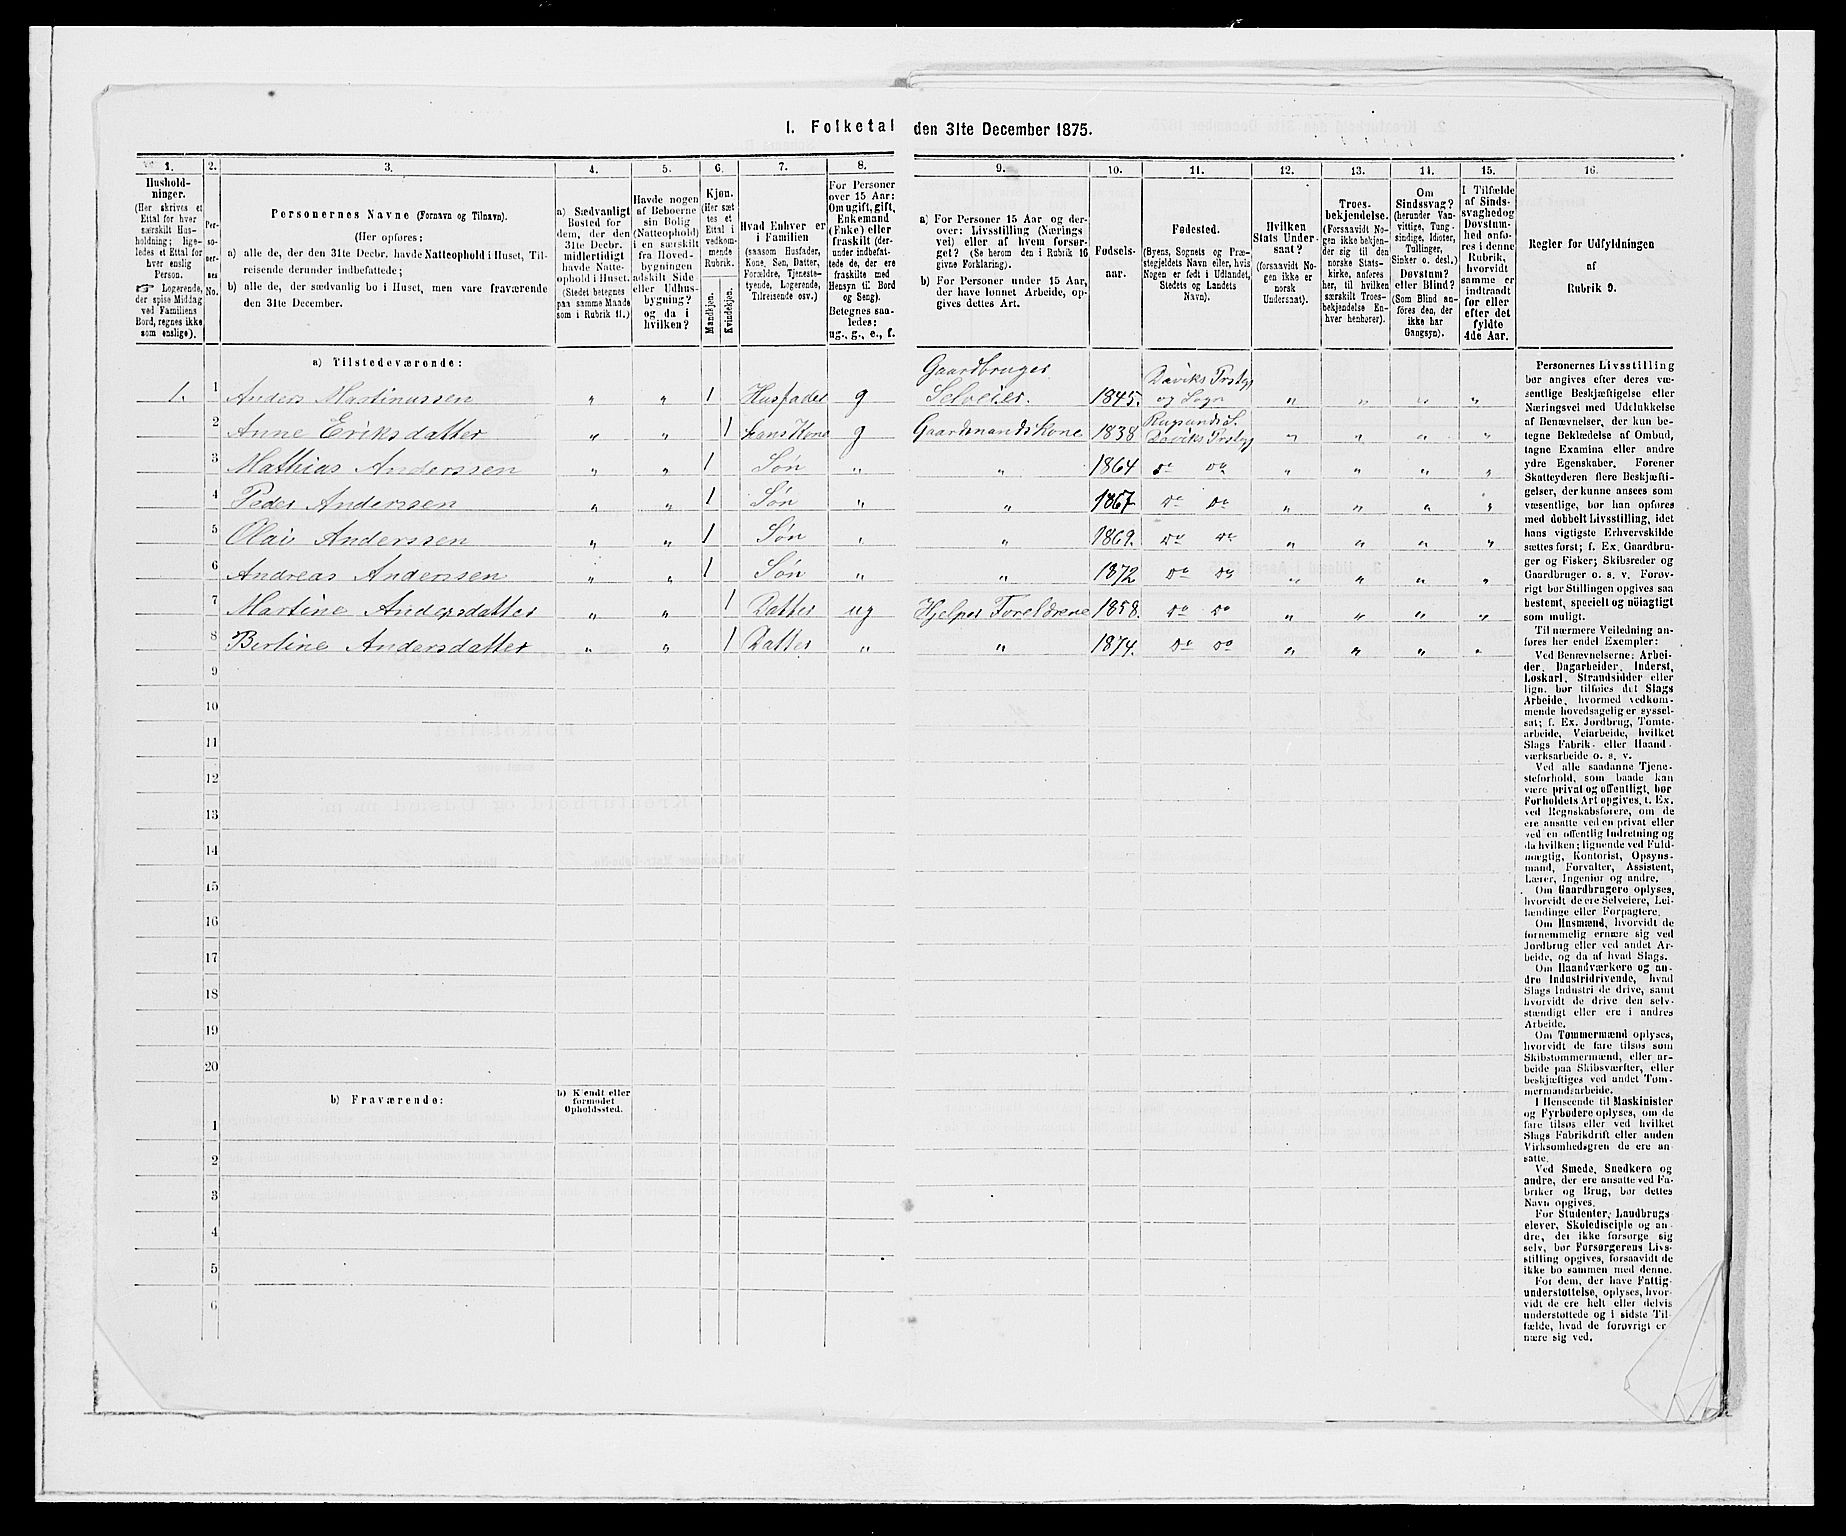 I. Folketal den 31te December 1875.
1. 2. 3. 4. 5. 6. 7. 8. 9. 10. 11. 12. 13. 14. 15. 16.
Hushold-
ninger.
(Her skrives et
Ettal for hver
særskilt Hus-
holdning; lige-
ledes et Ettal for
hver enslig
Person.
☞ Logerende,
der spise Middag
ved Familiens
Bord, regnes ikke
som enslige).
Per-
so-
ner-
nes
No.
Personernes Navne (Fornavn og Tilnavn).
(Her opføres:
a) alle de, der den 31te Decbr. havde Natteophold i Huset, Til-
reisende derunder indbefattede;
b) alle de, der sædvanlig bo i Huset, men vare fraværende
den 31te December.
a) Sædvanligt
Bosted for
dem, der den
31te Decbr.
midlertidigt
havde Natte-
ophold i Huset.
(Stedet betegnes
paa samme Maade
som i Rubrik 11.)
Havde nogen
af Beboerne
sin Bolig
(Natteophold)
i en særskilt
fra Hoved-
bygningen
adskilt Side
eller Udhus-
bygning?
og da i
hvilken?
Kjøn.
(Her sæt-
tes et
Ettal i
vedkom-
mende
Rubrik.
Mandkjøn.
Kvindekjøn.
Hvad Enhver er
i Familien
(saasom Husfader,
Kone, Søn, Datter,
Forældre, Tjeneste-
tyende, Logerende,
Tilreisende osv.)
For Personer
over 15 Aar:
Om ugift, gift,
Enkemand
(Enke) eller
fraskilt (der-
under indbefat-
tede de, der ere
fraskilte med
Hensyn til Bord
og Seng).
Betegnes saa-
ledes:
ug., g., e., f.
a) For Personer 15 Aar og der-
over: Livsstilling (Nærings-
vei) eller af hvem forsør-
get? (Se herom den i Rubrik 16
givne Forklaring).
b) For Personer under 15 Aar,
der have lønnet Arbeide, op-
gives dettes Art.
Fødsels-
aar.
Fødested.
(Byens, Sognets og Præ-
stegjeldets Navn eller, hvis
Nogen er født i Udlandet,
Stedets og Landets
Navn).
Hvilken
Stats Under-
saat?
(forsaavidt No-
gen ikke er
norsk
Undersaat).
Troes-
bekjendelse.
(Forsaavidt No-
gen ikke bekjen-
der sig til den
norske Stats-
kirke, anføres
her, til hvilken
særskilt Troes-
bekjendelse En-
hver henhører).
Om
Sindssvag?
(herunder Van-
vittige, Tung-
sindige, Idioter,
Tullinger,
Sinker o. desl.)
Døvstum?
eller Blind?
(Som Blind an-
føres den, der
ikke har
Gangsyn).
I Tilfælde
af Sinds-
svaghed og
Døvstum-
hed anfø-
res i denne
Rubrik,
hvorvidt
samme er
indtraadt
før eller
efter det
fyldte
4de Aar.
Regler for Udfyldningen
af
Rubrik 9.
a) Tilstedeværende:
1. 1 Anders Martinussen " " 1 Husfader g Gaardbruger Selveier. 1845. Daviks Prstgj og Sogn " " " "
2 Anne Eriksdatter " " 1 hans Kone g Gaardmandskone 1838 Rugsunds S. Daviks Prstgj " " " "
3 Mathias Anderssen " " 1 Søn " " 1864 do do " " " "
4 Peder Anderssen " " 1 Søn " " 1867 do do " " " "
5 Olai Anderssen " " 1 Søn " " 1869. do do " " " "
6 Andreas Anderssen " " 1 Søn " " 1872 do do " " " "
7 Martine Andersdatter " " 1 Datter ug Hjelper Forældrene 1858. do do " " " "
8 Bertine Andersdatter " " 1 Datter " " 1874. do do " " " "
9
10
11
12
13
14
15
16
17
18
19
20
b) Fraværende:
b) Kjendt eller
formodet
Opholdssted.
1
2
3
4
5
6
Personernes Livsstilling
bør angives efter deres væ-
sentlige Beskjæftigelse eller
Næringsvei med Udelukkelse
af Benævnelser, der kun be-
tegne Beklædelse af Ombud,
tagne Examina eller andre
ydre Egenskaber. Forener
Skatteyderen flere Beskjæfti-
gelser, der kunne ansees som
væsentlige, bør han opføres
med dobbelt Livsstilling, idet
hans vigtigste Erhvervskilde
sættes først; f. Ex. Gaardbru-
ger og Fisker; Skibsreder og
Gaardbruger o. s. v. Forøv-
rigt bør Stillingen opgives saa
bestemt, specielt og nøiagtigt
som muligt.
Til nærmere Veiledning an-
føres her endel Exempler:
Ved Benævnelserne: Arbei-
der, Dagarbeider, Inderst,
Løskarl, Strandsidder eller
lign. bør tilføies det Slags
Arbeide, hvormed vedkom-
mende hovedsagelig er syssel-
sat; f. Ex. Jordbrug, Tomte-
arbeide, Veiarbeide, hvilket
Slags Fabrik- eller Haand-
værksarbeide o. s. v.
Ved alle saadanne Tjene-
steforhold, som baade kan
være privat og offentligt, bør
Forholdets Art opgives, t. Ex.
ved Regnskabsførere, om de
ere ansatte ved en privat eller
ved en offentlig Indretning og
da hvilken; lignende ved Fuld-
mægtig, Kontorist, Opsyns-
mand, Forvalter, Assistent,
Lærer, Ingeniør og andre.
Om Gaardbrugere oplyses,
hvorvidt de ere Selveiere, Lei-
lændinge eller Forpagtere.
Om Husmænd, hvorvidt de
fornemmelig ernære sig ved
Jordbrug eller ved andet Ar-
beide, og da af hvad Slags.
Om Haandværkere og an-
dre Industridrivende, hvad
Slags Industri de drive, samt
hvorvidt de drive den selv-
stændigt eller ere i andres
Arbeide.
Om Tømmermænd oplyses,
hvorvidt de fare tilsøs som
Skibstømmermænd, eller ar-
beide paa Skibsværfter, eller
beskjæftiges ved andet Tøm-
mermandsarbeide.
I Henseende til Maskinister
og Fyrbødere oplyses, om de
fare tilsøs eller ved hvilket
Slags Fabrikdrift eller anden
Virksomhedsgren de ere an-
satte.
Ved Smede, Snedkere og
andre, der ere ansatte ved Fa-
briker og Brug, bør dettes
Navn opgives.
For Studenter, Landbrugs-
elever, Skoledisciple og an-
dre, der ikke forsørge sig
selv, bør Forsørgerens Livs-
stilling opgives, forsaavidt de
ikke bo sammen med denne.
For dem, der have Fattig-
understøttelse, oplyses, hvor-
vidt de ere helt eller delvis
understøttede og i sidste Til-
fælde, hvad de forøvrigt er-
nære sig ved.